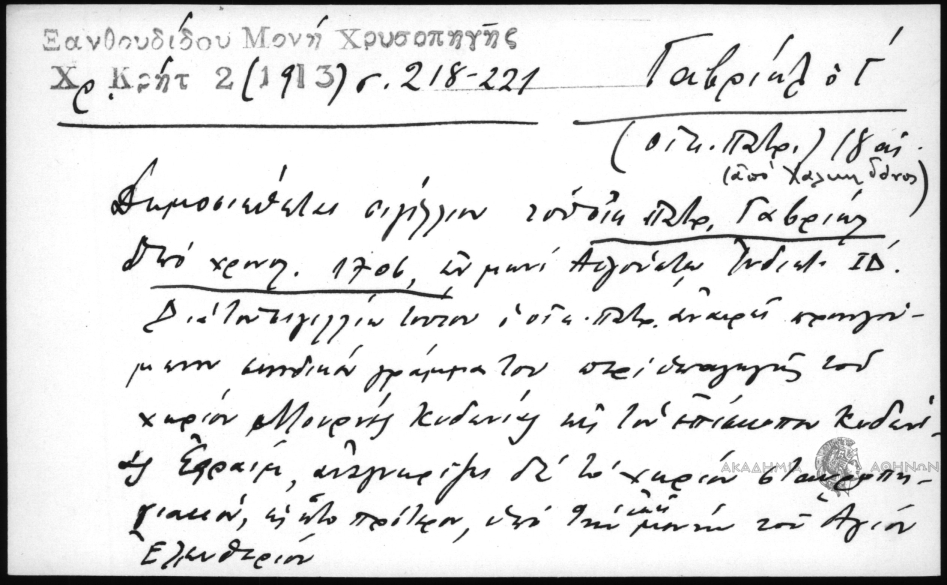 Ξανθουδίδου Μονή Χρυσοπηγῆς
Χρ. Κρήτ 2 (1913) σ. 218-221
Γαβριὴλ ὁ Γ΄
(οἰκ. Πατρ.) 18 αἰ.
(ἀπό Χαλκηδόνος)
Δημοσιεύεται σιγίλλιον τοῦ οἰκ. Πατρ. Γαβριήλ
ὑπό χρονολ. 1706, ἐν μηνί Αὐγούστῳ Ἰνδικτ. ΙΔ.
Διά τοῦ σιγιλλίου τούτου ὁ οἰκ. πατρ. ἀναιρεῖ προηγού-
μενον συνοδικόν γράμμα του περί ὑπαγωγῆς τοῦ
χωρίου Μουρνιές Κυδωνίας εἰς τόν ἐπίσκοπον Κυδωνί-
ας Ἐφραίμ, ἀναγνωρίζει δέ τό χωρίον σταυροπη-
γιακόν, ὡς ἦτο πρότερον, ὑπό τήν ἐκεῖ μονήν τοῦ Ἁγίου
Ἐλευθερίου
ΑΚΑΔΗΜΙΑ ΑΘΗΝΩΝ